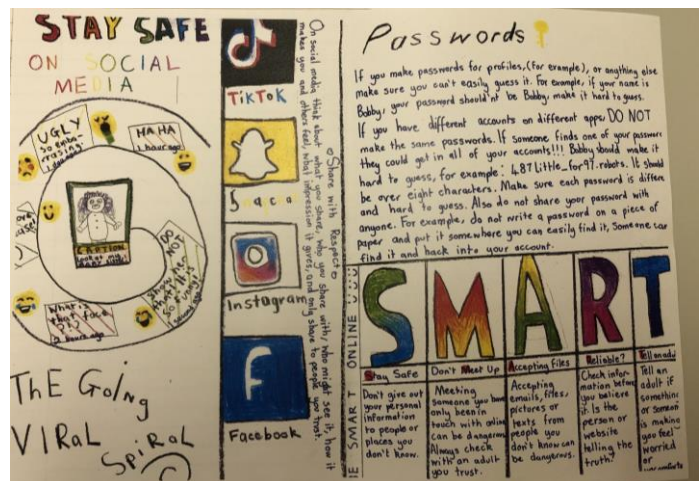 STAY SAFE
ON SOCIAL
MEDIA
UGLY
so emba-
rrasing.
HAHA
1 hour ago
What is
that face
?!
2 hours ago
DO
NOT
show
ThE GoIng
VIRaL
SpiRaL
TikTok
Instagram
Facebook
Share with Respect
On social media think about what you share, who you share with, who might see it, how it
makes you and others feel, what impression it gives, and only share to people you trust.
Passwords
If you make passwords for profiles,(for example), or anything else
make sure you can't easily guess it. For example, if your name is
Bobby, your password should'nt be Bobby, make it hard to guess.
If you have different accounts on different apps, DO NOT
make the same passwords. If someone finds one of your passwor
they could get in all of your accounts!!! Bobby should make it
hard to guess, for example: 487Little_for97.robots. It should
be over eight characters. Make sure each password is differe
and hard to guess. Also do not share your password with
anyone. For example, do not write a password on a piece of
paper and put it somewhere you can easily find it, Someone can
find it and hack into your account.
BE SMART ONLINE
SMART
Stay Safe
Don't give out
your personal
information
to people or
places you
don't know.
Don't Meet Up
Meeting
someone you have
only been in
touch with online
can be dangerous.
Always check
with an adult
you trust.
Accepting Files
Accepting
emails, files,
pictures or
texts from
people you
don't know can
be dangerous.
Reliable?
Check infor-
mation before
you believe
it. Is the
person or
website
telling the
truth?
Tell an adu
Tell an
adult if
somethin
or someon
is making
you feel
worried
or